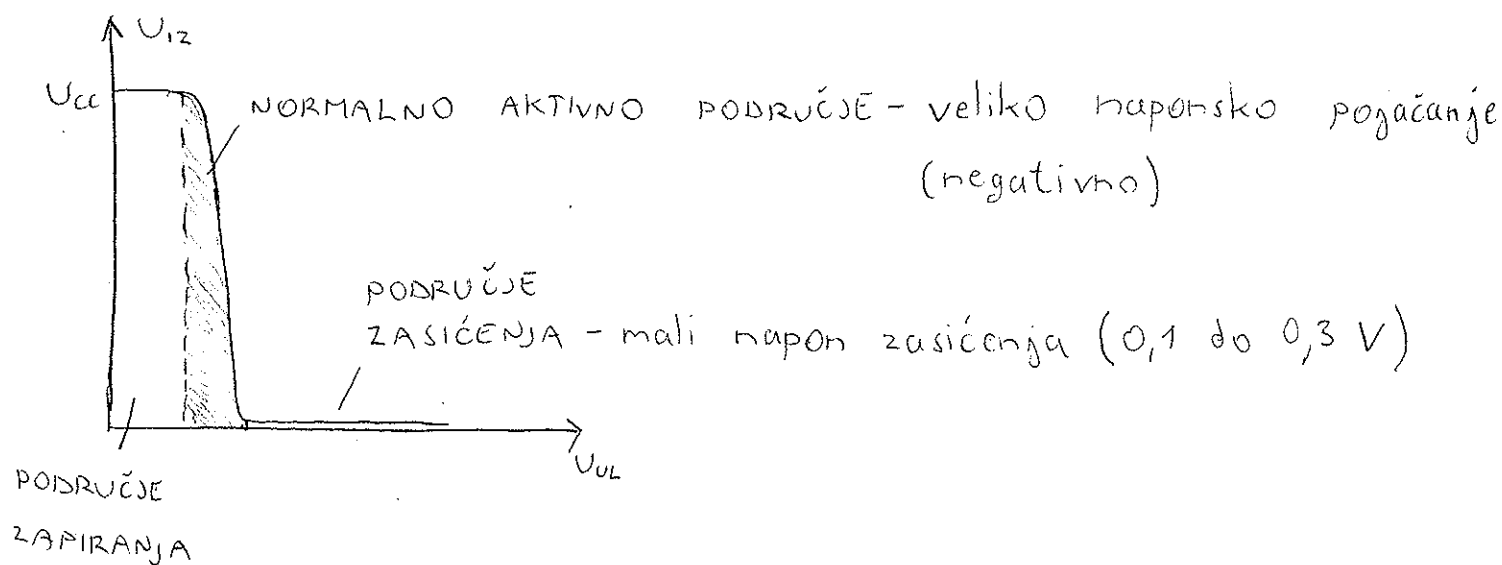 U_IZ
U_CC
NORMALNO AKTIVNO PODRUČJE - veliko naponsko pojačanje
(negativno)
PODRUČJE
ZASIĆENJA - mali napon zasićenja (0,1 do 0,3 V)
U_UL
PODRUČJE
ZAPIRANJA